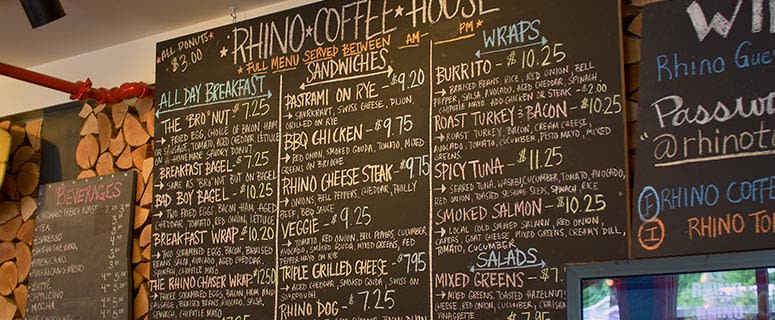 ALL DONUTS
$3.00
RHINO COFFEE HOUSE
FULL MENU SERVED BETWEEN AM - PM
ALL DAY BREAKFAST
THE "BRO"NUT - $7.25
→ FRIED EGGS, CHOICE OF BACON, HAM
OR SAUSAGE, TOMATO, AGED CHEDDAR, LETTUCE
ON A HOME MADE SAVORY DONUT
BREAKFAST BAGEL - $7.25
→ SAME AS "BRO"NUT BUT ON BAGEL
BAD BOY BAGEL - $10.25
→ TWO FRIED EGGS, BACON, HAM, AGED
CHEDDAR, TOMATO, RED ONION, LETTUCE
BREAKFAST WRAP - $10.20
→ TWO SCRAMBLED EGGS, BACON, BRAISED
BEANS, SALSA, AVOCADO, AGED CHEDDAR,
SPINACH, CHIPOTLE MAYO
THE RHINO CHASER WRAP $12.50
→ THREE SCRAMBLED EGGS, BACON, HAM AND
SAUSAGE, BRAISED BEANS, SALSA,
AVOCADO, AGED CHEDDAR, SPINACH,
CHIPOTLE MAYO
SANDWICHES
PASTRAMI ON RYE - $9.20
→ SAURKRAUT, SWISS CHEESE, DIJON,
GRILLED ON RYE
BBQ CHICKEN - $9.75
→ RED ONION, SMOKED GOUDA, TOMATO, MIXED
GREENS ON BRIOCHE
RHINO CHEESE STEAK - $9.75
→ ONIONS, BELL PEPPERS, CHEDDAR, PHILLY
BEEF, BBQ SAUCE
VEGGIE - $9.25
→ TOMATO, RED ONION, BELL PEPPERS, CUCUMBER
AVOCADO, SMOKED GOUDA, MIXED GREENS, RED
PEPPER MAYO ON RYE
TRIPLE GRILLED CHEESE - $7.95
→ AGED CHEDDAR, SMOKED GOUDA, SWISS ON
SOURDOUGH
RHINO DOG - $7.25
WRAPS
BURRITO - $10.25
→ BRAISED BEANS, RICE, RED ONION, BELL
PEPPER, SALSA, AVOCADO, AGED CHEDDAR, SPINACH,
CHIPOTLE MAYO ADD CHICKEN OR STEAK - $2.00
ROAST TURKEY & BACON - $10.25
→ ROAST TURKEY, BACON, CREAM CHEESE,
AVOCADO, TOMATO, CUCUMBER, PESTO MAYO, MIXED
GREENS
SPICY TUNA - $11.25
→ SEARED TUNA, WASABI, CUCUMBER, TOMATO, AVOCADO,
RED ONION, TOASTED SESAME SEEDS, SPINACH, RICE
SMOKED SALMON - $10.25
→ LOCAL COLD SMOKED SALMON, RED ONION,
CAPERS, GOAT CHEESE, MIXED GREENS, CREAMY DILL,
TOMATO, CUCUMBER
SALADS
MIXED GREENS - $7.
→ MIXED GREENS, TOASTED HAZELNUTS
BEETS, RED ONION, CUCUMBER
VINAIGRETTE
$7.95
BEVERAGES
ORGANIC FRENCH ROAST
TEA
ESPRESSO
AMERICANO
LATTÉ
CAPPUCINO
MOCHA
WI
Rhino Gue
Passwo
@rhinoto
RHINO COFF
RHINO TO